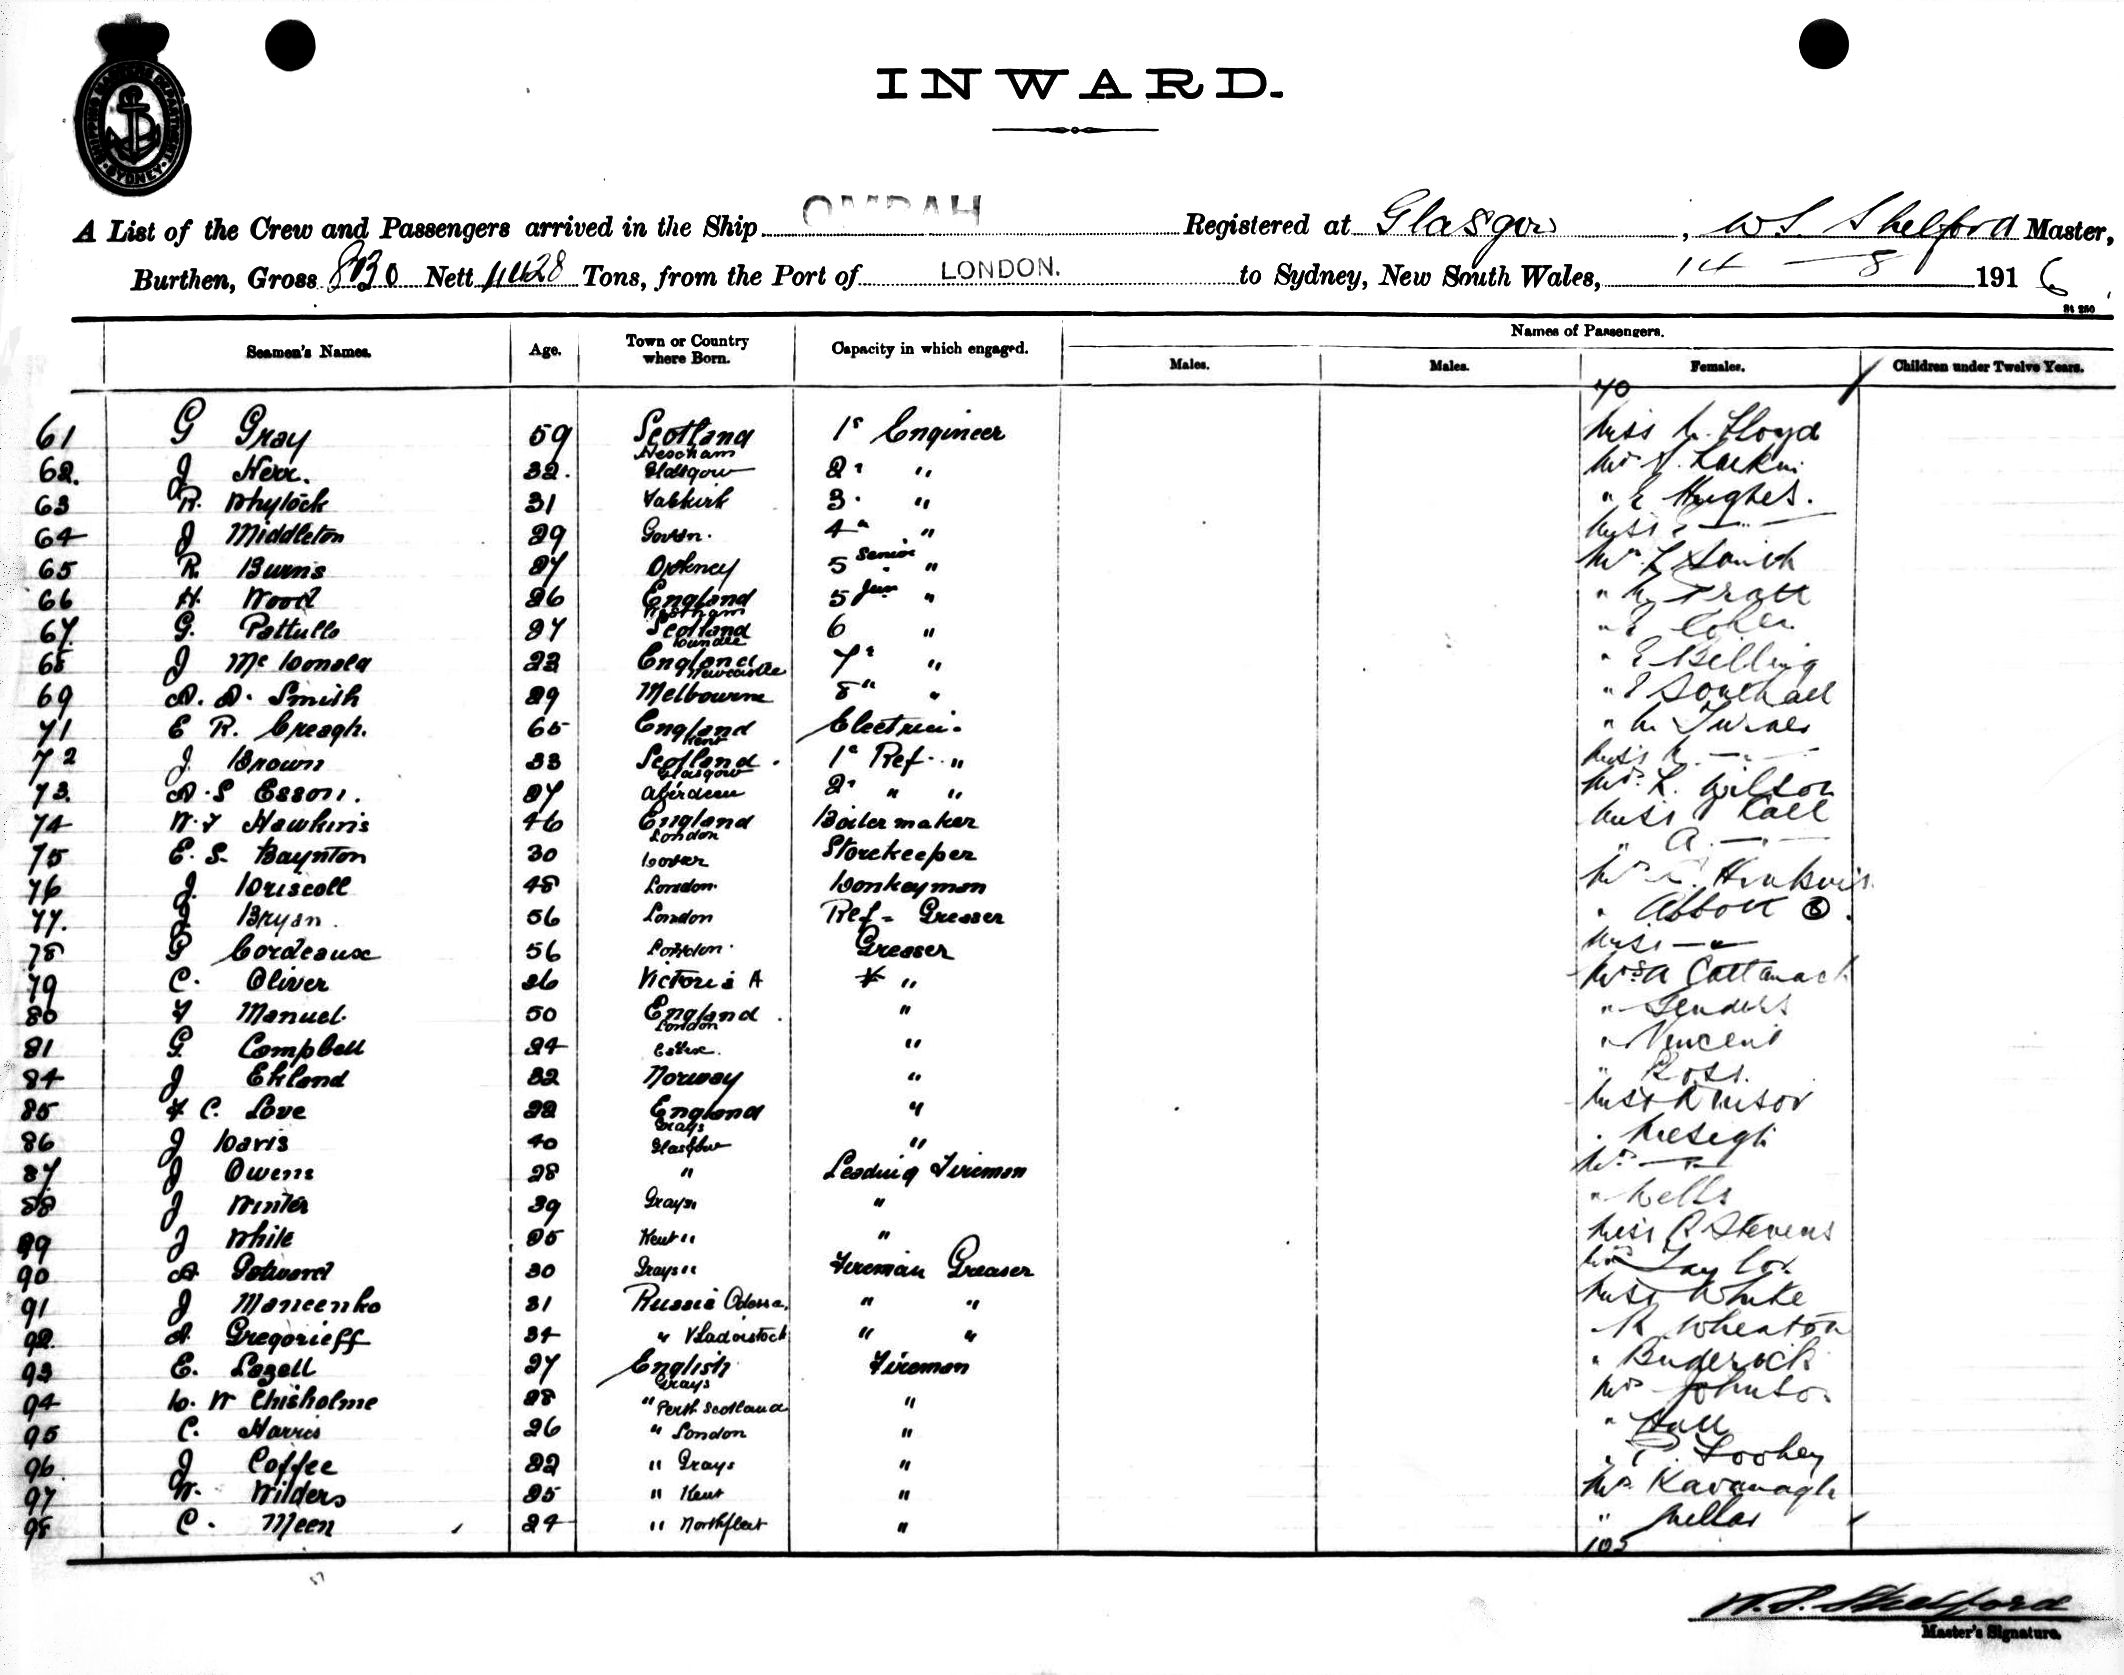 SHIPPING MASTERS DEPARTMENT SYDNEY
INWARD.
A List of the Crew and Passengers arrived in the Ship OMRAH Registered at Glasgow, W S Shelford Master,
Burthen, Gross 8130 Nett 4428 Tons, from the Port of LONDON. to Sydney, New South Wales, 14 - 8 1916
St 250
Names of Passengers.
Seamen's Names. Age. Town or Country where Born. Capacity in which engaged. Males. Males. Females. Children under Twelve Years.
70
61 G Gray 59 Scotland 1st Engineer Miss Lloyd
62. J Kerr. 32. Glasgow 2" " Larkin
63 R. Whylock 31 Falkirk 3. " " E Hughes.
64 J Middleton 29 Govan. 4" " Miss E — " —
65 R. Burns 27 Orkney 5 Senior " Mrs
66 H. Wood 26 England 5 Jun " " Pratt
67. G. Pattullo 27 Scotland Dundee 6 " " E Cohen
68 J McDonald 23 England Newcastle 7" " " E Billing
69 A. A. Smith 29 Melbourne 8" " " E Southall
71 E R. Creagh. 65 England Kent Electrici. "
72 J. Brown 33 Scotland. Glasgow 1" Ref. " Miss — " —
73. A. S Esson. 27 Aberdeen 2" " " Mrs. L. Wilson
74 W. F Hawkins 46 England London Boilermaker Miss Call
75 E. S. Baynton 30 Dover Storekeeper " A. — " —
76 J. Driscoll 48 London. Donkeyman Mrs
77. J Bryan. 56 London Ref - Greaser " Abbott
78 G Cordeaux 56 London. Greaser Miss — " —
79 C. Oliver 26 Victoria A " Mrs A Cattanach
80 F Manuel. 50 England. London " "
81 G. Campbell 24 Essex. " " Vincent
84 J Ekland 32 Norway " " Ross.
85 F C. Love 22 England Grays " Miss
86 J Davis 40 Glasgow "
87 J Owens 28 " Leading Fireman Mrs — " —
88 J Winter 39 Grays " " Wells
89 J White 25 Kent " " Miss R Stevens
90 A Potward 30 Grays " Fireman Greaser Mrs Taylor
91 J Maneenko 31 Russia Odessa. " " Miss White
92. A. Gregorieff 34 " Vladivstock " " R Wheaton
93 E. Lazell 27 English Grays Fireman " Buderick
94 D. W Chisholme 28 " Perth Scotland " Mrs Johnson
95 C. Harris 26 " London " " Hall
96. J Coffee 22 " Grays " " Toohey
97 W. Wilders 25 " Kent " Mrs. Kavanagh
98 C. Meen 24 " Northfleet " " Mellor
105
W. S. Shelford
Master's Signature.